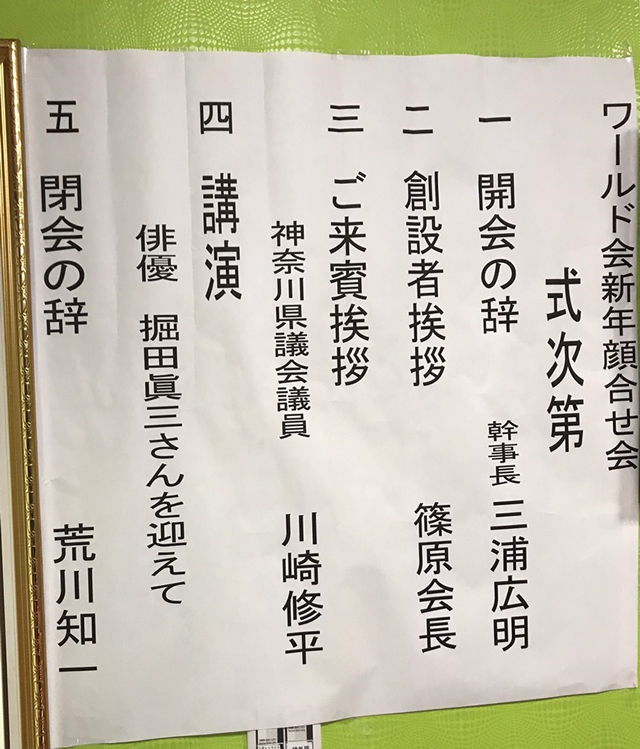 ワールド会新年顔合せ会
式次第
一 開会の辞 幹事長 三浦広明
二 創設者挨拶 篠原会長
三 ご来賓挨拶
神奈川県議会議員 川崎修平
四 講演
俳優 堀田眞三さんを迎えて
五 閉会の辞 荒川知一